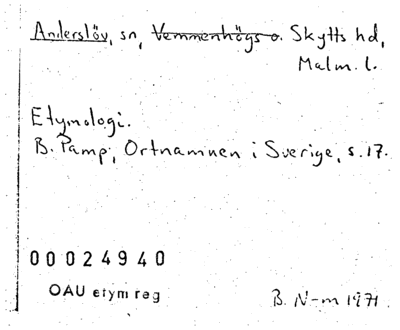 Anderslöv, sn, Vemmenhögs o. Skytts hd,
Malm. l.
Etymologi.
B. Pamp, Ortnamnen i Sverige, s. 17.
00024940
OAU etym reg
B. N-m 1971.